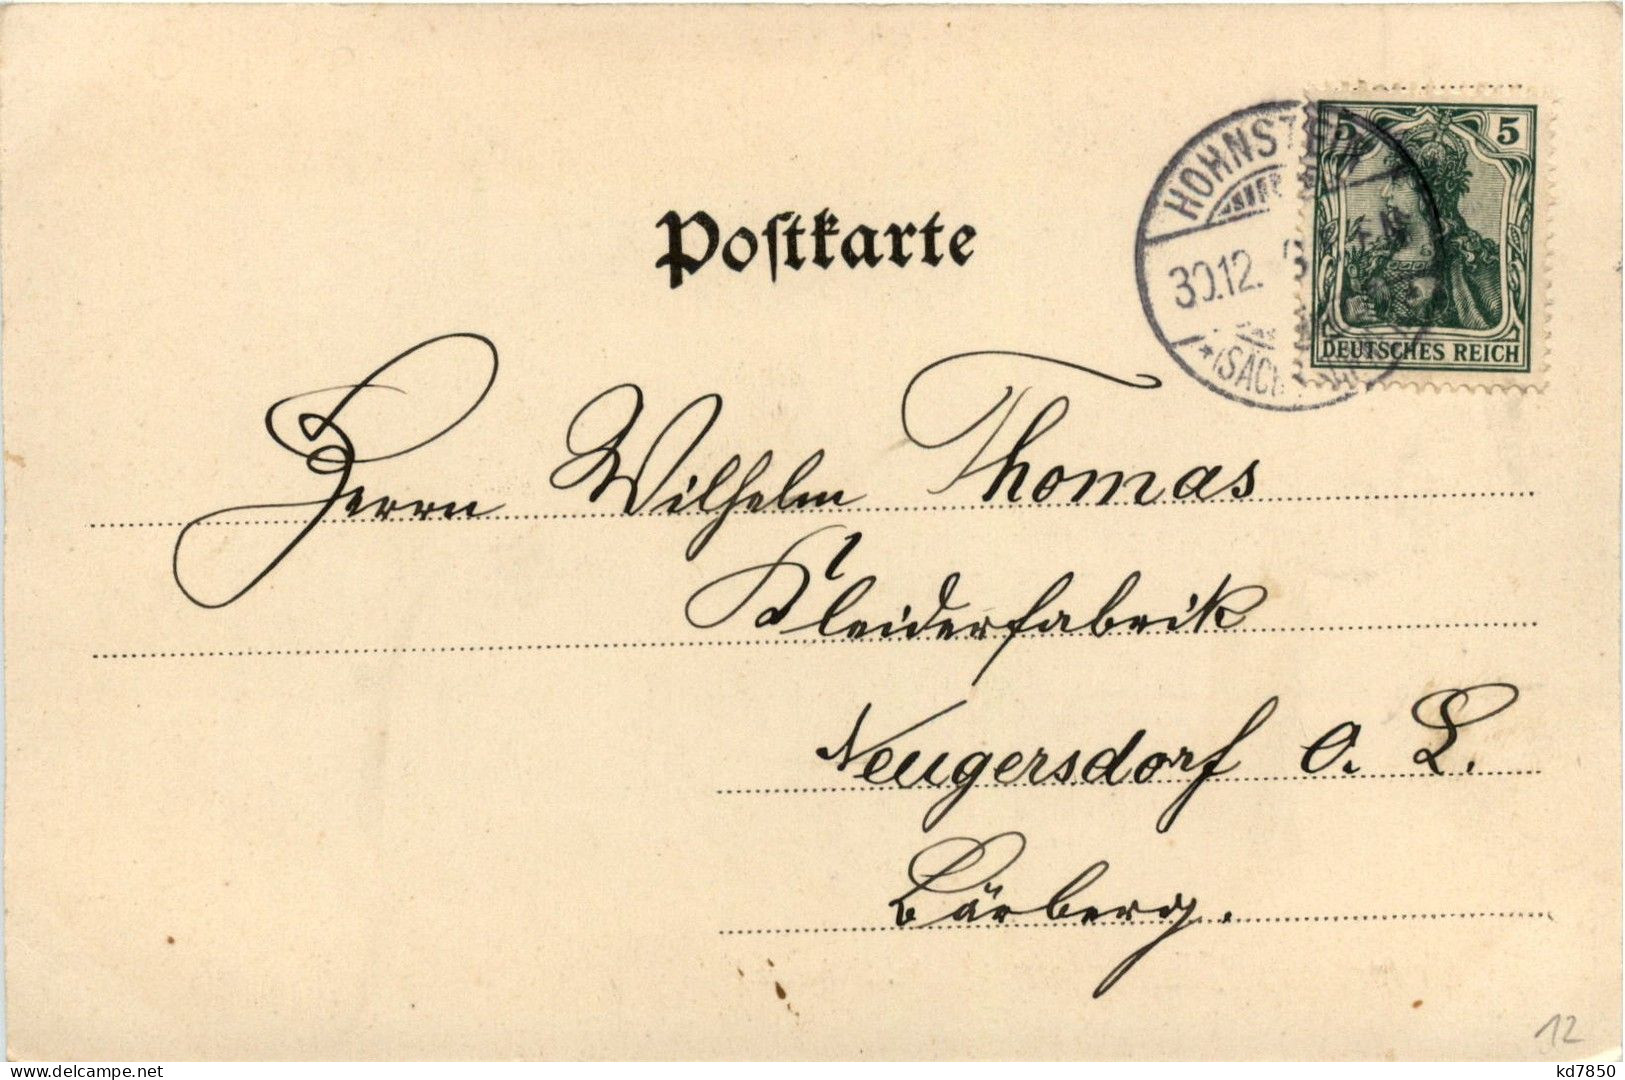 Postkarte
HOHNSTEIN
30.12.
(SACHSEN)
5 5
DEUTSCHES REICH
Herrn Wilhelm Thomas
Kleiderfabrik
Neugersdorf O. L.
Bärberg.
12
www.delcampe.net
kd7850